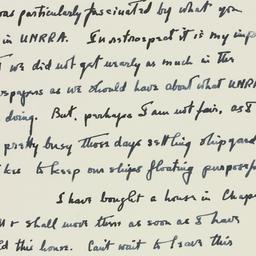 was particularly fascinated by what you
in UNRRA. In retrospect it is my imp
we did not get nearly as much in the
spapers as we should have about what UNR
doing. But, perhaps I am not fair, as I
pretty busy those days settling shipyard
kes to keep our ships floating purposef
I have bought a house in Chap
& shall move then as soon as I have
ld this house. Can't wait to leave this